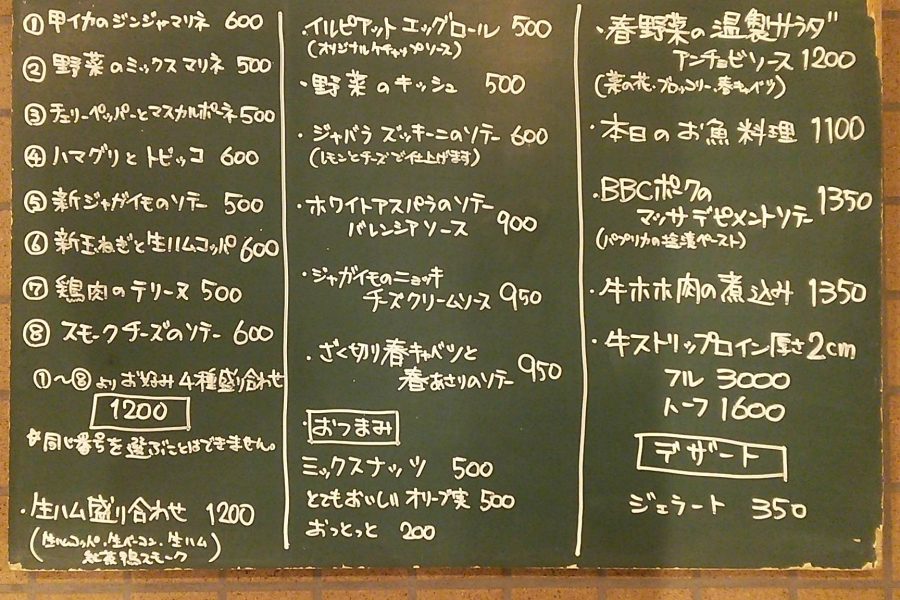 ① 甲イカのジンジャマリネ 600
② 野菜のミックスマリネ 500
③ チェリーペッパーとマスカルポーネ 500
④ ハマグリとトビッコ 600
⑤ 新ジャガイモのソテー 500
⑥ 新玉ねぎと生ハムコッパ 600
⑦ 鶏肉のテリーヌ 500
⑧ スモークチーズのソテー 600
①〜⑧よりお好み4種盛り合わせ
1200
同じ番号を選ぶことはできません。
・生ハム盛り合わせ 1200
(生ハムコッパ・生ベーコン・生ハム
紅茶鴨スモーク)
・イルピアット エッグロール 500
(オリジナルケチャップソース)
・野菜のキッシュ 500
・ジャバラ ズッキーニのソテー 600
(レモンとチーズで仕上げます)
・ホワイトアスパラのソテー
バレンシアソース 900
・ジャガイモのニョッキ
チーズクリームソース 950
・ざく切り春キャベツと
春あさりのソテー 950
・おつまみ
ミックスナッツ 500
とてもおいしいオリーブ実 500
おっとっと 200
・春野菜の温製サラダ
アンチョビソース 1200
(菜の花・ブロッコリー・春キャベツ)
・本日のお魚料理 1100
・BBCポークの
マッサデピメントソテー 1350
(パプリカの塩漬ペースト)
・牛ホホ肉の煮込み 1350
・牛ストリップロイン厚さ2cm
フル 3000
ハーフ 1600
デザート
ジェラート 350